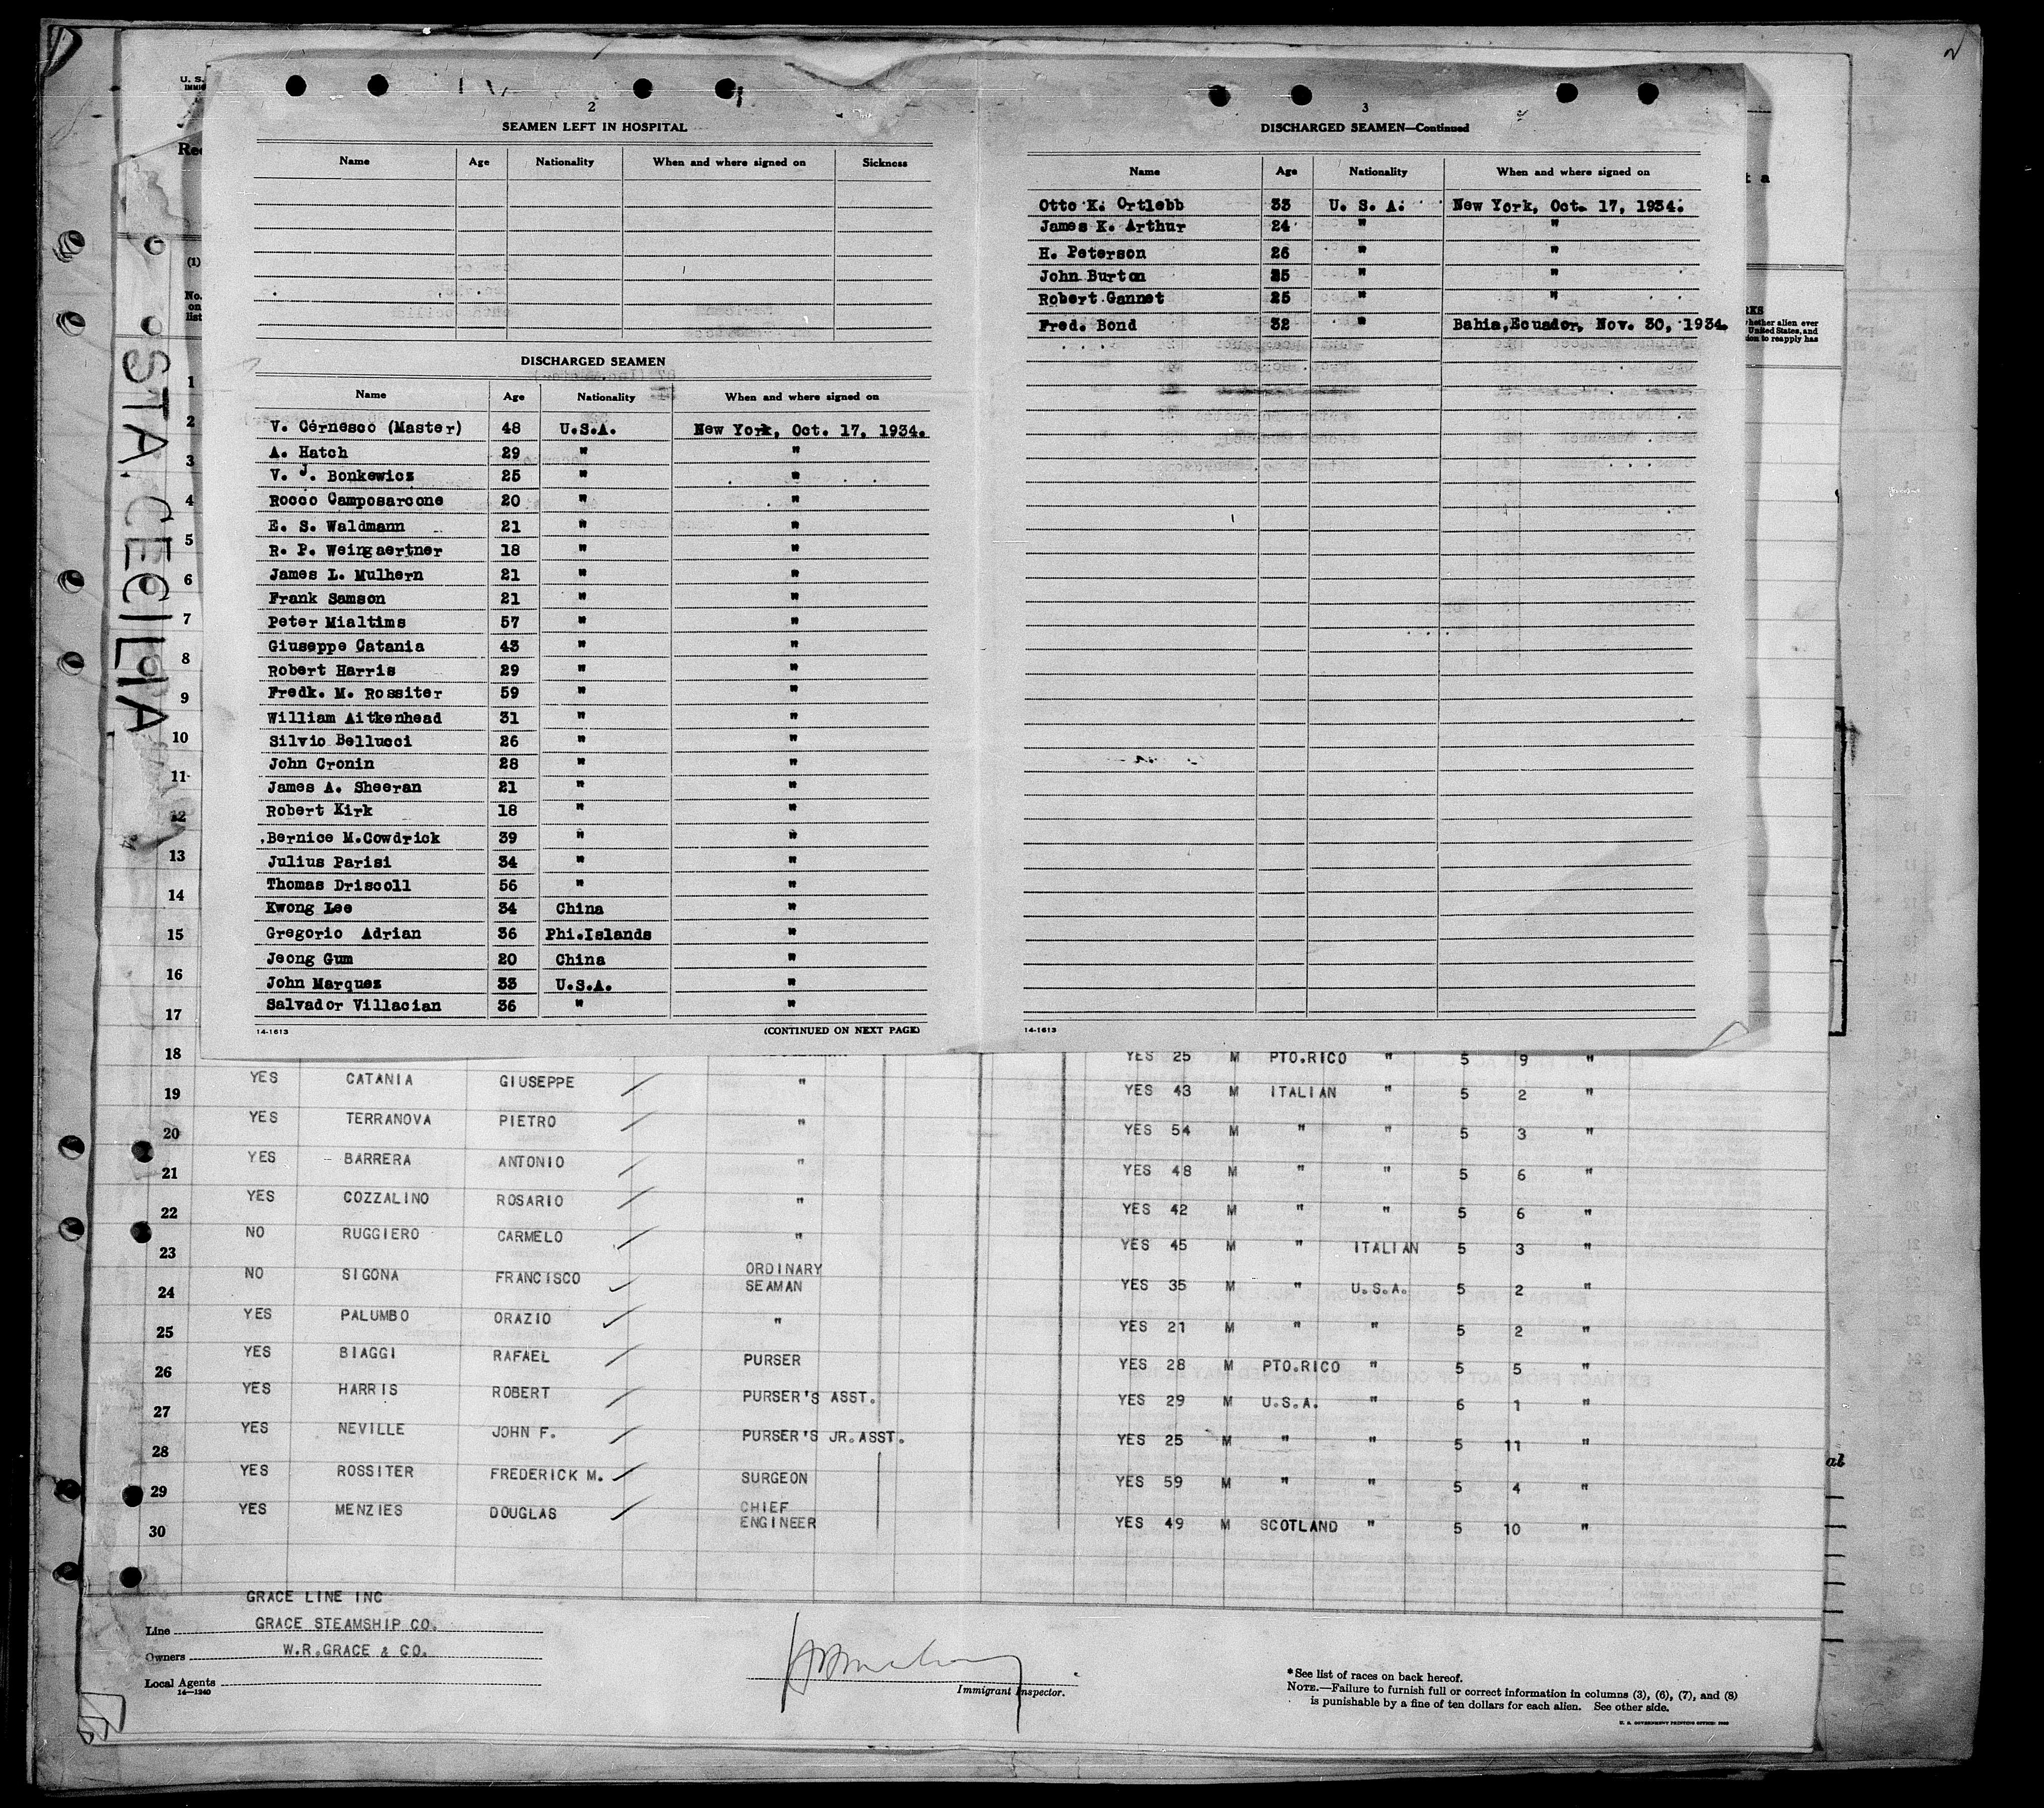 2
U. S.
Rec
(1)
No. on list
STA. CECILIA
2
SEAMEN LEFT IN HOSPITAL
Name Age Nationality When and where signed on Sickness
DISCHARGED SEAMEN
Name Age Nationality When and where signed on
V. Cernesco (Master) 48 U.S.A. New York, Oct. 17, 1934.
A. Hatch 29 " "
V. J. Bonkewicz 25 " "
Rocco Camposarcone 20 " "
E. S. Waldmann 21 " "
R. P. Weingaertner 18 " "
James L. Mulhern 21 " "
Frank Samson 21 " "
Peter Mialtims 57 " "
Giuseppe Catania 43 " "
Robert Harris 29 " "
Fredk. M. Rossiter 59 " "
William Aitkenhead 31 " "
Silvio Bellucci 26 " "
John Cronin 28 " "
James A. Sheeran 21 " "
Robert Kirk 18 " "
Bernice M.Cowdrick 39 " "
Julius Parisi 34 " "
Thomas Driscoll 56 " "
Kwong Lee 34 China "
Gregorio Adrian 36 Phi.Islands "
Jeong Gum 20 China "
John Marquez 33 U.S.A. "
Salvador Villacian 36 " "
14-1613 (CONTINUED ON NEXT PAGE)
3
DISCHARGED SEAMEN—Continued
Name Age Nationality When and where signed on
Otto K. Ortlebb 33 U. S. A. New York, Oct. 17, 1934.
James K. Arthur 24 " "
H. Peterson 26 " "
John Burton 25 " "
Robert Gannet 25 " "
Fred. Bond 32 " Bahia,Ecuador, Nov. 30, 1934.
14-1613
1
2
3
4
5
6
7
8
9
10
11
12
13
14
15
16
17
18 YES 25 M PTO.RICO " 5 9 "
19 YES CATANIA GIUSEPPE " YES 43 M ITALIAN " 5 2 "
20 YES TERRANOVA PIETRO " YES 54 M " " 5 3 "
21 YES BARRERA ANTONIO " YES 48 M " " 5 6 "
22 YES COZZALINO ROSARIO " YES 42 M " " 5 6 "
23 NO RUGGIERO CARMELO " YES 45 M " ITALIAN 5 3 "
24 NO SIGONA FRANCISCO ORDINARY SEAMAN YES 35 M " U.S.A. 5 2 "
25 YES PALUMBO ORAZIO " YES 21 M " " 5 2 "
26 YES BIAGGI RAFAEL PURSER YES 28 M PTO.RICO " 5 5 "
27 YES HARRIS ROBERT PURSER'S ASST. YES 29 M U.S.A. " 6 1 "
28 YES NEVILLE JOHN F. PURSER'S JR.ASST. YES 25 M " " 5 11 "
29 YES ROSSITER FREDERICK M. SURGEON YES 59 M " " 5 4 "
30 YES MENZIES DOUGLAS CHIEF ENGINEER YES 49 M SCOTLAND " 5 10 "
GRACE LINE INC
Line GRACE STEAMSHIP CO.
Owners W.R.GRACE & CO.
Local Agents
14—1240
Immigrant Inspector.
*See list of races on back hereof.
NOTE.—Failure to furnish full or correct information in columns (3), (6), (7), and (8)
is punishable by a fine of ten dollars for each alien. See other side.